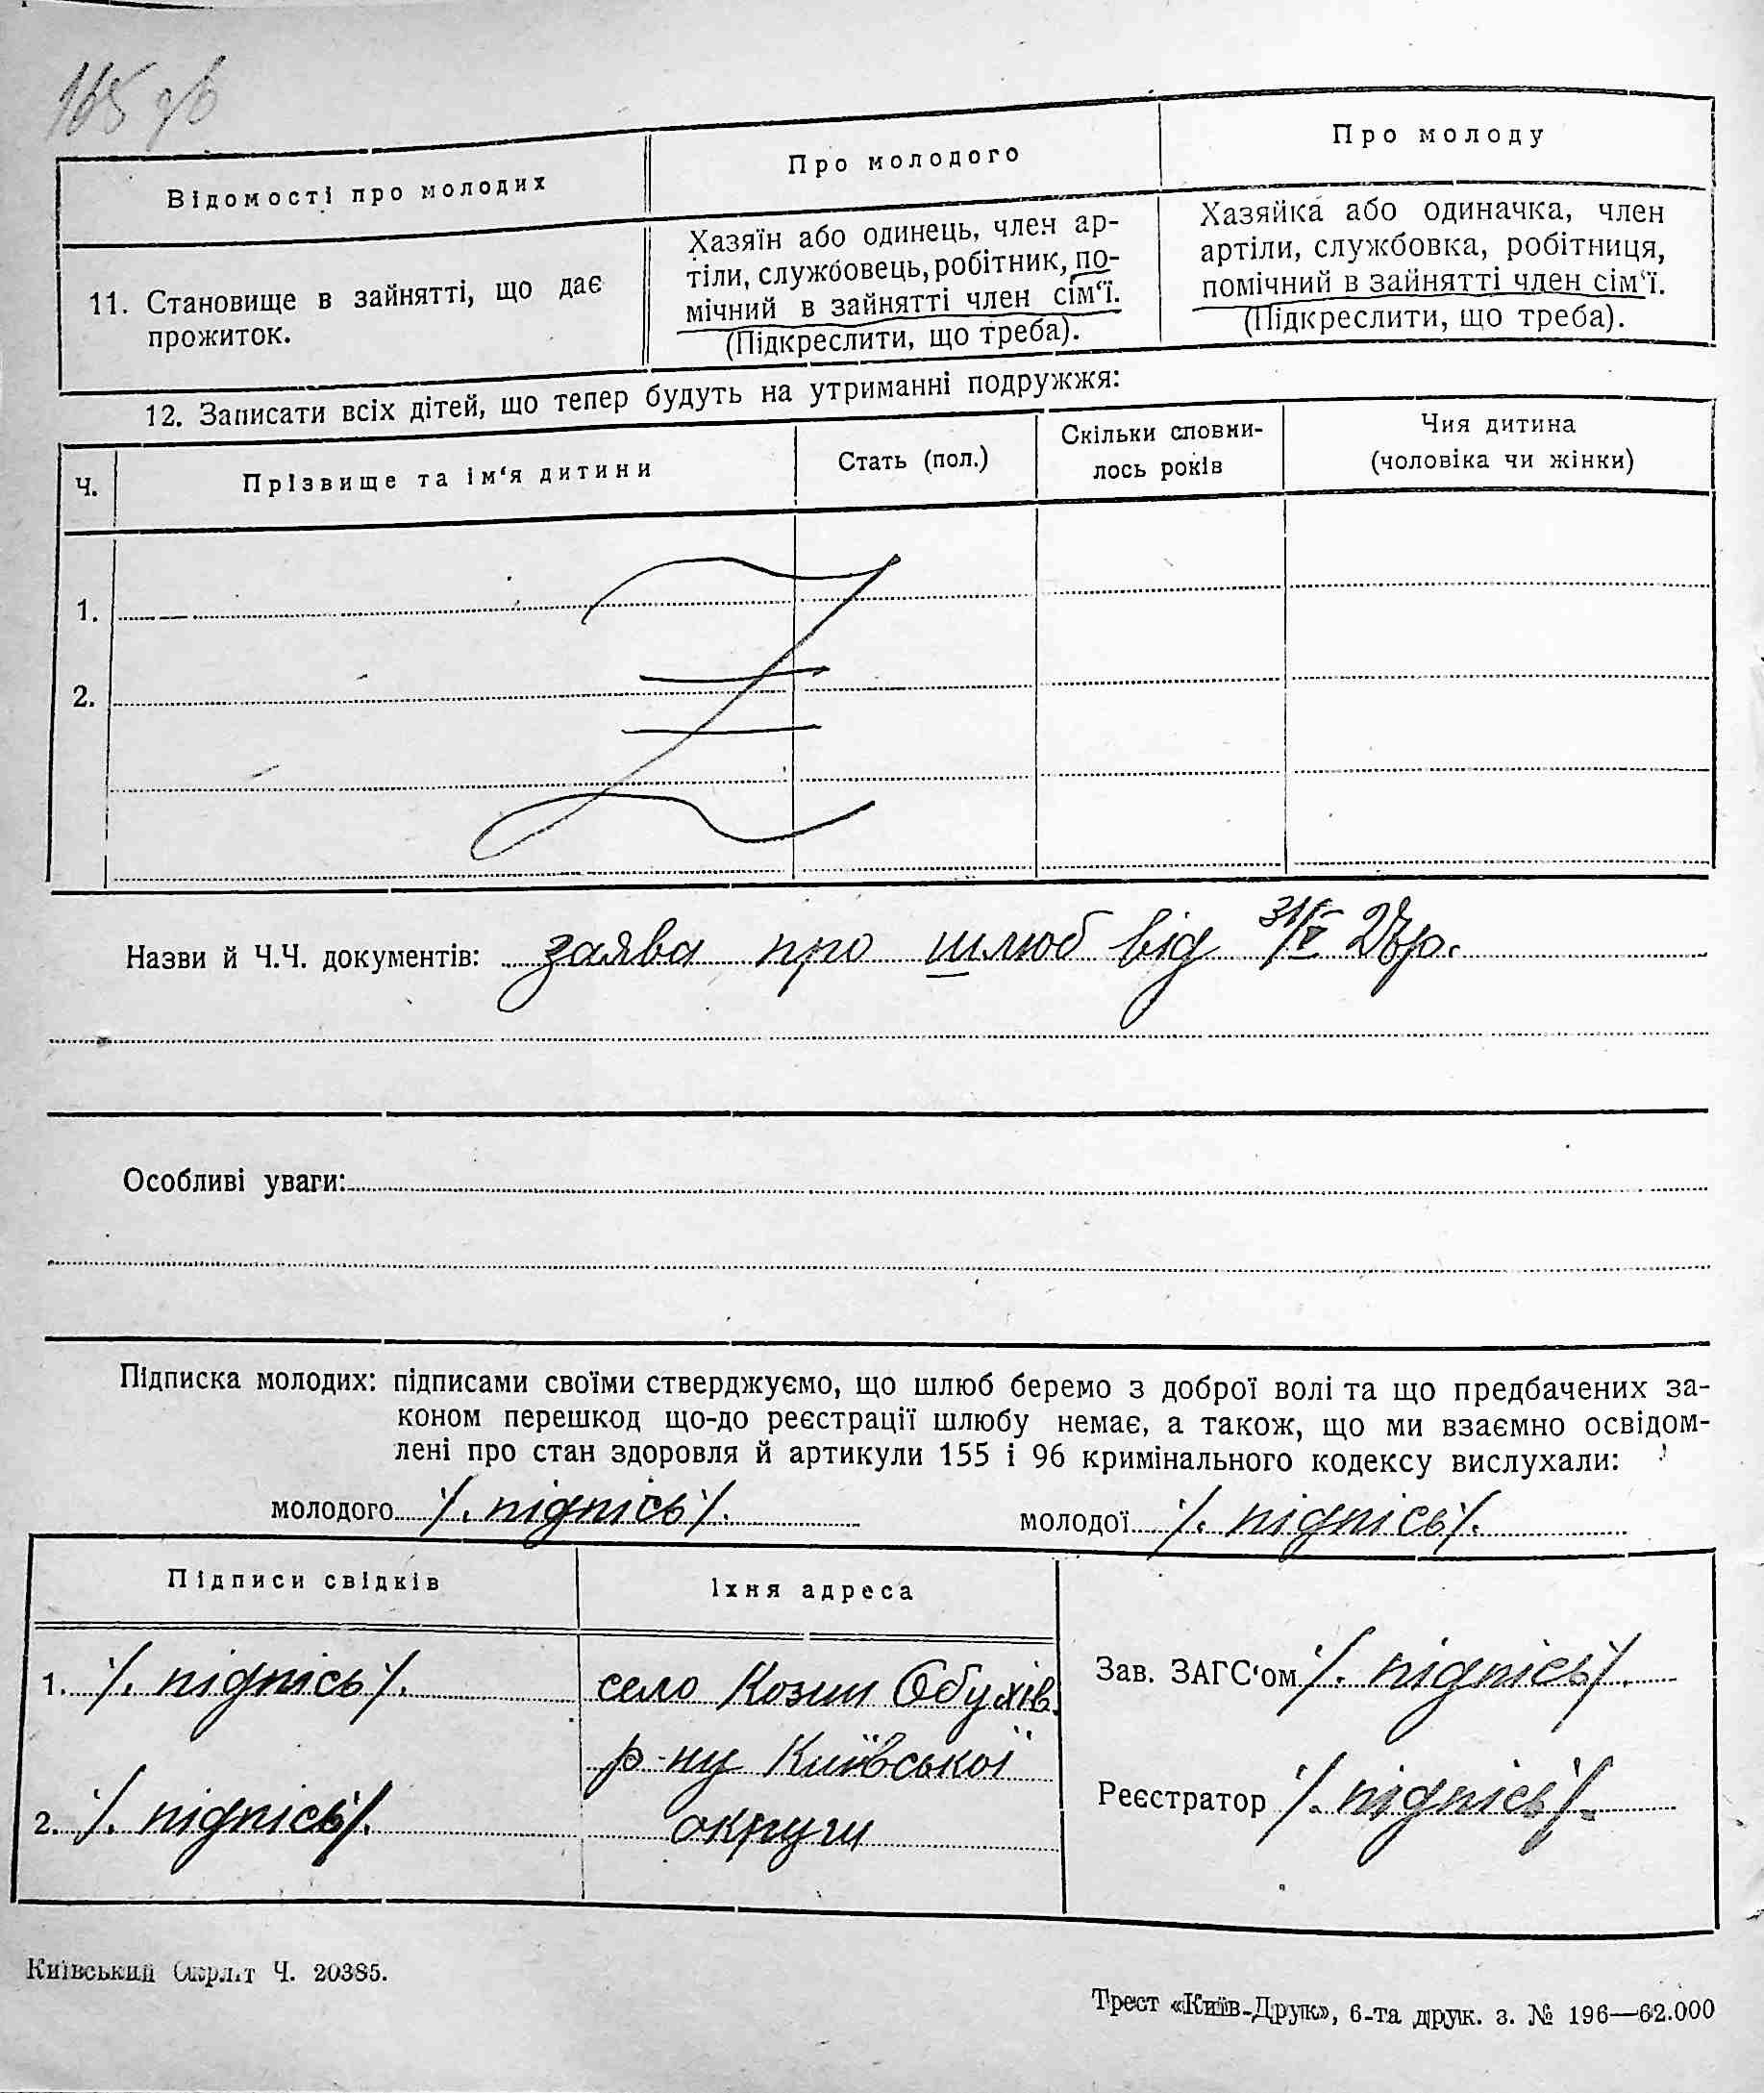 165 зв
Відомості про молодих
Про молодого
Про молоду
11. Становище в зайнятті, що дає
прожиток.
Хазяїн або одинець, член ар-
тіли, службовець, робітник, по-
мічний в зайнятті член сім‘ї.
(Підкреслити, що треба).
Хазяйка або одиначка, член
артіли, службовка, робітниця,
помічний в зайнятті член сім‘ї.
(Підкреслити, що треба).
12. Записати всіх дітей, що тепер будуть на утриманні подружжя:
Ч.
Прізвище та ім‘я дитини
Стать (пол.)
Скільки сповни-
лось років
Чия дитина
(чоловіка чи жінки)
1.
2.
Назви й Ч.Ч. документів: заява про шлюб від 31/V 28р.
Особливі уваги:
Підписка молодих: підписами своїми стверджуємо, що шлюб беремо з доброї волі та що предбачених за-
коном перешкод що-до реєстрації шлюбу немає, а також, що ми взаємно освідом-
лені про стан здоровля й артикули 155 і 96 кримінального кодексу вислухали:
молодого /. підпісь /.
молодої /. підпісь /.
Підписи свідків
Їхня адреса
1. /. підпісь /.
село Козин Обухів.
р-ну Київської
округи
2. /. підпісь /.
Зав. ЗАГС‘ом /. підпісь /.
Реєстратор /. підпісь /.
Київський Окрліт Ч. 20385.
Трест «Київ-Друк», 6-та друк. з. № 196—62.000